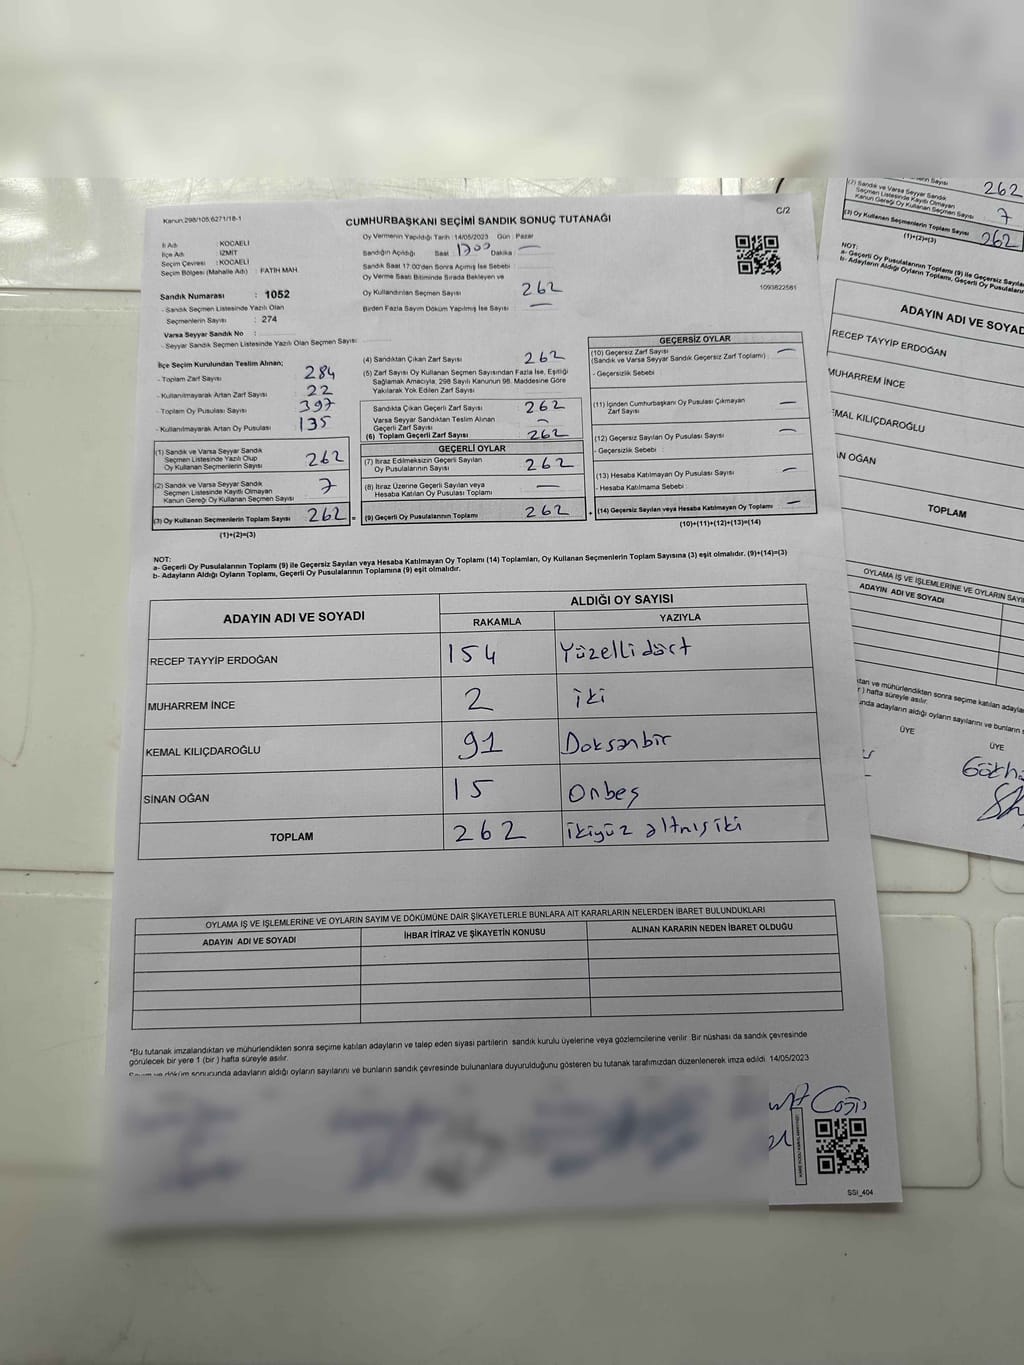 Kanun:298/105,6271/18-1
C/2
CUMHURBAŞKANI SEÇİMİ SANDIK SONUÇ TUTANAĞI
İl Adı : KOCAELİ
İlçe Adı : İZMİT
Seçim Çevresi : KOCAELİ
Seçim Bölgesi (Mahalle Adı) : FATİH MAH
Sandık Numarası : 1052
- Sandık Seçmen Listesinde Yazılı Olan
Seçmenlerin Sayısı : 274
Varsa Seyyar Sandık No :
- Seyyar Sandık Seçmen Listesinde Yazılı Olan Seçmen Sayısı
Oy Vermenin Yapıldığı Tarih :14/05/2023 Gün : Pazar
Sandığın Açıldığı Saat 1700 Dakika : —
Sandık Saat 17:00'den Sonra Açılmış İse Sebebi :
Oy Verme Saati Bitiminde Sırada Bekleyen ve
Oy Kullandırılan Seçmen Sayısı 262
Birden Fazla Sayım Döküm Yapılmış İse Sayısı : —
1093822581
İlçe Seçim Kurulundan Teslim Alınan;
- Toplam Zarf Sayısı 284
- Kullanılmayarak Artan Zarf Sayısı 22
- Toplam Oy Pusulası Sayısı 397
- Kullanılmayarak Artan Oy Pusulası 135
(1) Sandık ve Varsa Seyyar Sandık
Seçmen Listesinde Yazılı Olup
Oy Kullanan Seçmenlerin Sayısı 262
(2) Sandık ve Varsa Seyyar Sandık
Seçmen Listesinde Kayıtlı Olmayan
Kanun Gereği Oy Kullanan Seçmen Sayısı 7
(3) Oy Kullanan Seçmenlerin Toplam Sayısı 262 =
(1)+(2)=(3)
(4) Sandıktan Çıkan Zarf Sayısı 262
(5) Zarf Sayısı Oy Kullanan Seçmen Sayısından Fazla İse, Eşitliği
Sağlamak Amacıyla, 298 Sayılı Kanunun 98. Maddesine Göre
Yakılarak Yok Edilen Zarf Sayısı
Sandıkta Çıkan Geçerli Zarf Sayısı 262
Varsa Seyyar Sandıktan Teslim Alınan
Geçerli Zarf Sayısı —
(6) Toplam Geçerli Zarf Sayısı 262
GEÇERLİ OYLAR
(7) İtiraz Edilmeksizin Geçerli Sayılan
Oy Pusulalarının Sayısı 262
(8) İtiraz Üzerine Geçerli Sayılan veya
Hesaba Katılan Oy Pusulası Toplamı —
(9) Geçerli Oy Pusulalarının Toplamı 262 +
GEÇERSİZ OYLAR
(10) Geçersiz Zarf Sayısı —
(Sandık ve Varsa Seyyar Sandık Geçersiz Zarf Toplamı)
- Geçersizlik Sebebi :
(11) İçinden Cumhurbaşkanı Oy Pusulası Çıkmayan
Zarf Sayısı —
(12) Geçersiz Sayılan Oy Pusulası Sayısı —
- Geçersizlik Sebebi :
(13) Hesaba Katılmayan Oy Pusulası Sayısı —
- Hesaba Katılmama Sebebi
(14) Geçersiz Sayılan veya Hesaba Katılmayan Oy Toplamı —
(10)+(11)+(12)+(13)=(14)
NOT:
a- Geçerli Oy Pusulalarının Toplamı (9) ile Geçersiz Sayılan veya Hesaba Katılmayan Oy Toplamı (14) Toplamları, Oy Kullanan Seçmenlerin Toplam Sayısına (3) eşit olmalıdır. (9)+(14)=(3)
b- Adayların Aldığı Oyların Toplamı, Geçerli Oy Pusulalarının Toplamına (9) eşit olmalıdır.
ADAYIN ADI VE SOYADI
ALDIĞI OY SAYISI
RAKAMLA YAZIYLA
RECEP TAYYİP ERDOĞAN 154 Yüzellidört
MUHARREM İNCE 2 iki
KEMAL KILIÇDAROĞLU 91 Doksanbir
SİNAN OĞAN 15 Onbeş
TOPLAM 262 ikiyüz altmış iki
OYLAMA İŞ VE İŞLEMLERİNE VE OYLARIN SAYIM VE DÖKÜMÜNE DAİR ŞİKAYETLERLE BUNLARA AİT KARARLARIN NELERDEN İBARET BULUNDUKLARI
ADAYIN ADI VE SOYADI İHBAR İTİRAZ VE ŞİKAYETİN KONUSU ALINAN KARARIN NEDEN İBARET OLDUĞU
*Bu tutanak imzalandıktan ve mühürlendikten sonra seçime katılan adayların ve talep eden siyasi partilerin sandık kurulu üyelerine veya gözlemcilerine verilir. Bir nüshası da sandık çevresinde
görülecek bir yere 1 (bir) hafta süreyle asılır.
Sayım ve döküm sonucunda adayların aldığı oyların sayılarını ve bunların sandık çevresinde bulunanlara duyurulduğunu gösteren bu tutanak tarafımızdan düzenlenerek imza edildi. 14/05/2023
SSI_404
262
(2) Sandık ve Varsa Seyyar Sandık
Seçmen Listesinde Kayıtlı Olmayan
Kanun Gereği Oy Kullanan Seçmen Sayısı 7
(3) Oy Kullanan Seçmenlerin Toplam Sayısı 262
(1)+(2)=(3)
NOT:
a- Geçerli Oy Pusulalarının Toplamı (9) ile Geçersiz
b- Adayların Aldığı Oyların Toplamı, Geçerli Oy
ADAYIN ADI VE SOYAD
RECEP TAYYİP ERDOĞAN
MUHARREM İNCE
EMAL KILIÇDAROĞLU
AN OĞAN
TOPLAM
OYLAMA İŞ VE İŞLEMLERİNE VE OYLARIN
ADAYIN ADI VE SOYADI
ve mühürlendikten sonra seçime katılan
) hafta süreyle asılır.
adayların aldığı oyların sayılarını ve bunların
ÜYE
ÜYE